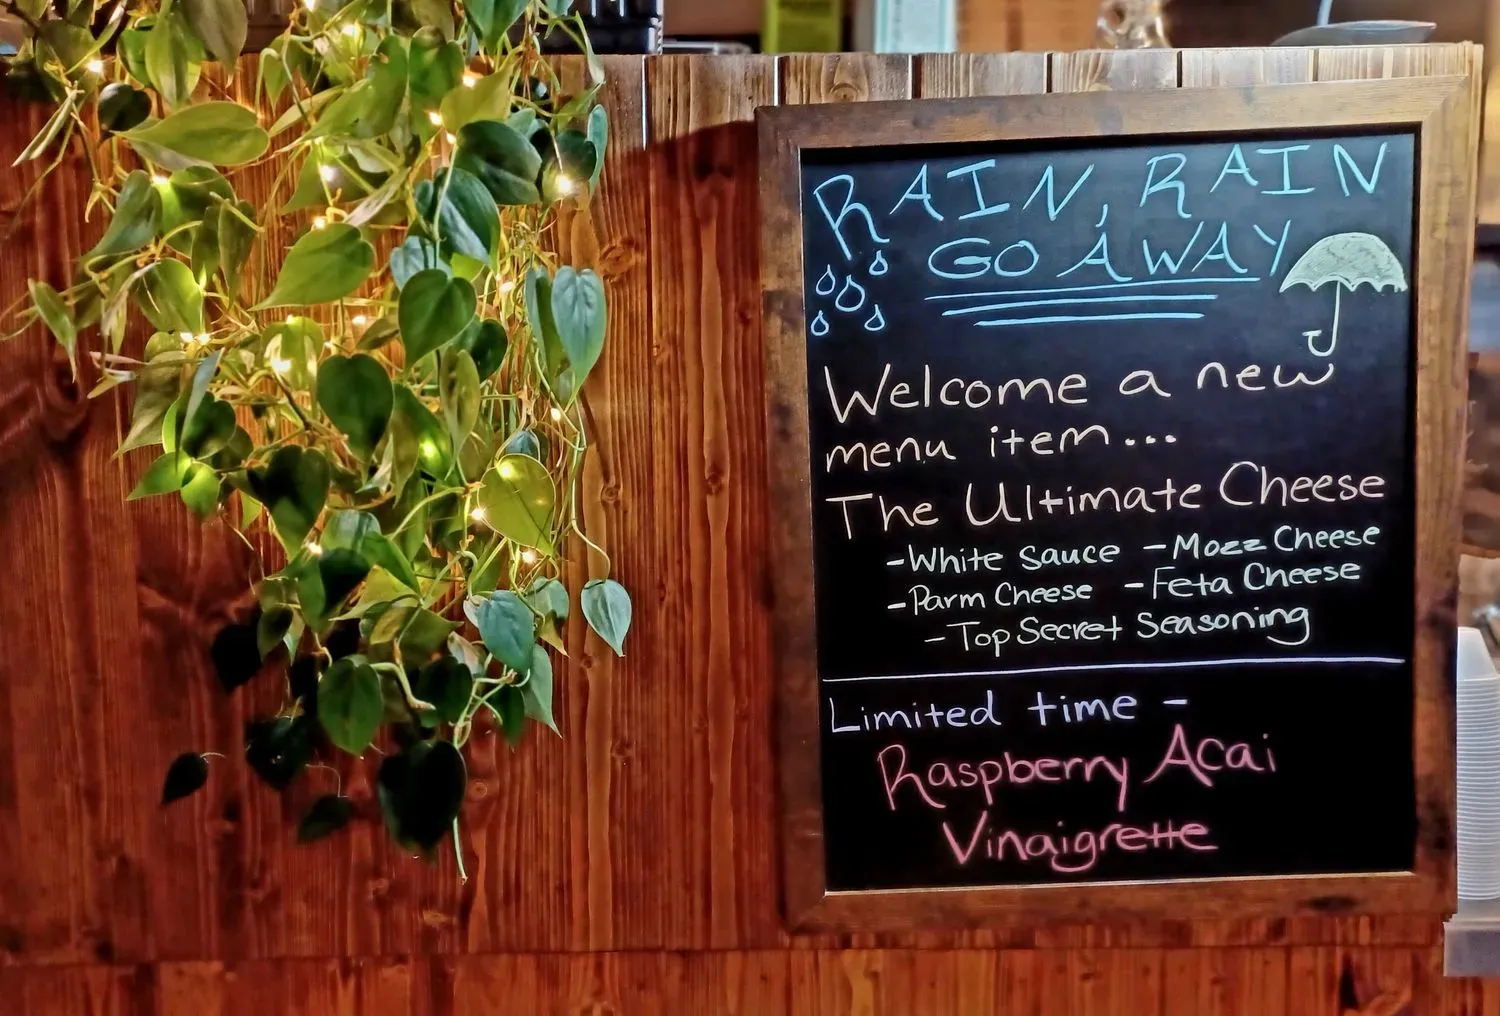 RAIN, RAIN
GO AWAY
Welcome a new
menu item...
The Ultimate Cheese
-White Sauce -Mozz Cheese
-Parm Cheese -Feta Cheese
-Top Secret Seasoning
Limited time -
Raspberry Acai
Vinaigrette